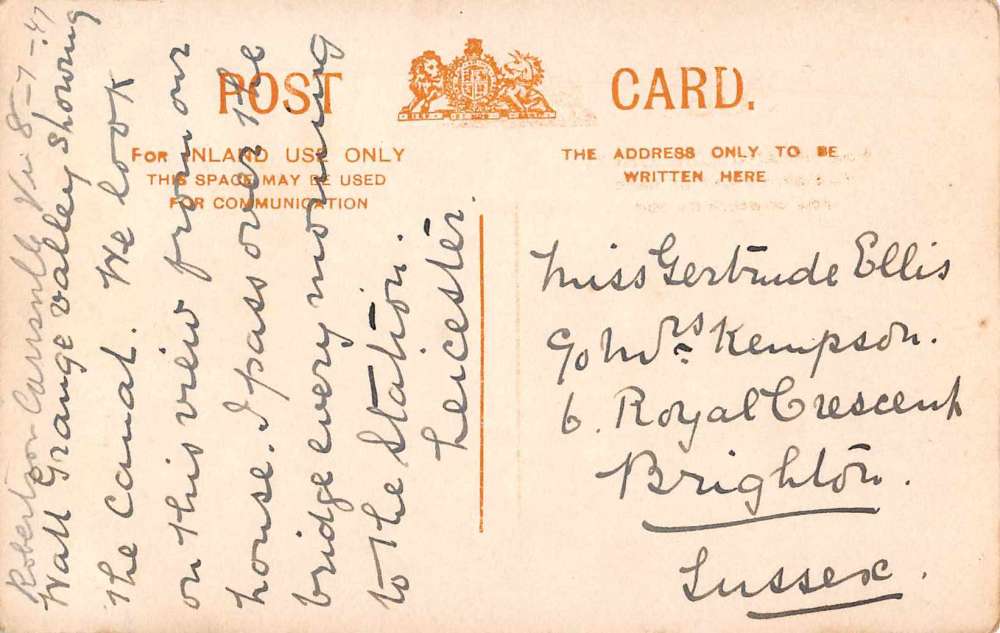 POST CARD.
FOR INLAND USE ONLY
THIS SPACE MAY BE USED
FOR COMMUNICATION
THE ADDRESS ONLY TO BE
WRITTEN HERE
8-7-47
Wall Grange Valley Showing
the Canal. We look
on this view from our
house. I pass over the
bridge every morning
to the Station.
Leicester.
Miss Gertrude Ellis
c/o Mrs Kempson.
6. Royal Crescent
Brighton.
Sussex.